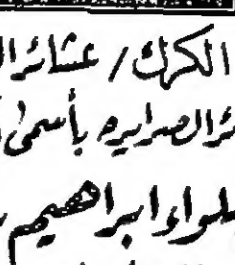 الكرك / عشائر ال
ئر الصرايره بأسمى
لواء ابراهيم